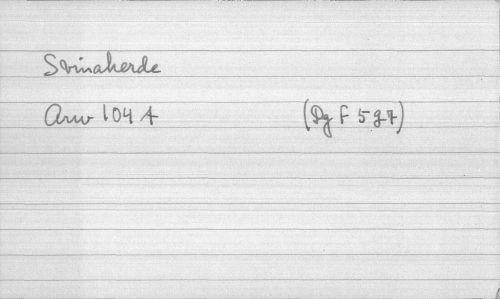 Svinaherde
Arw 104 A (Dg F 527)